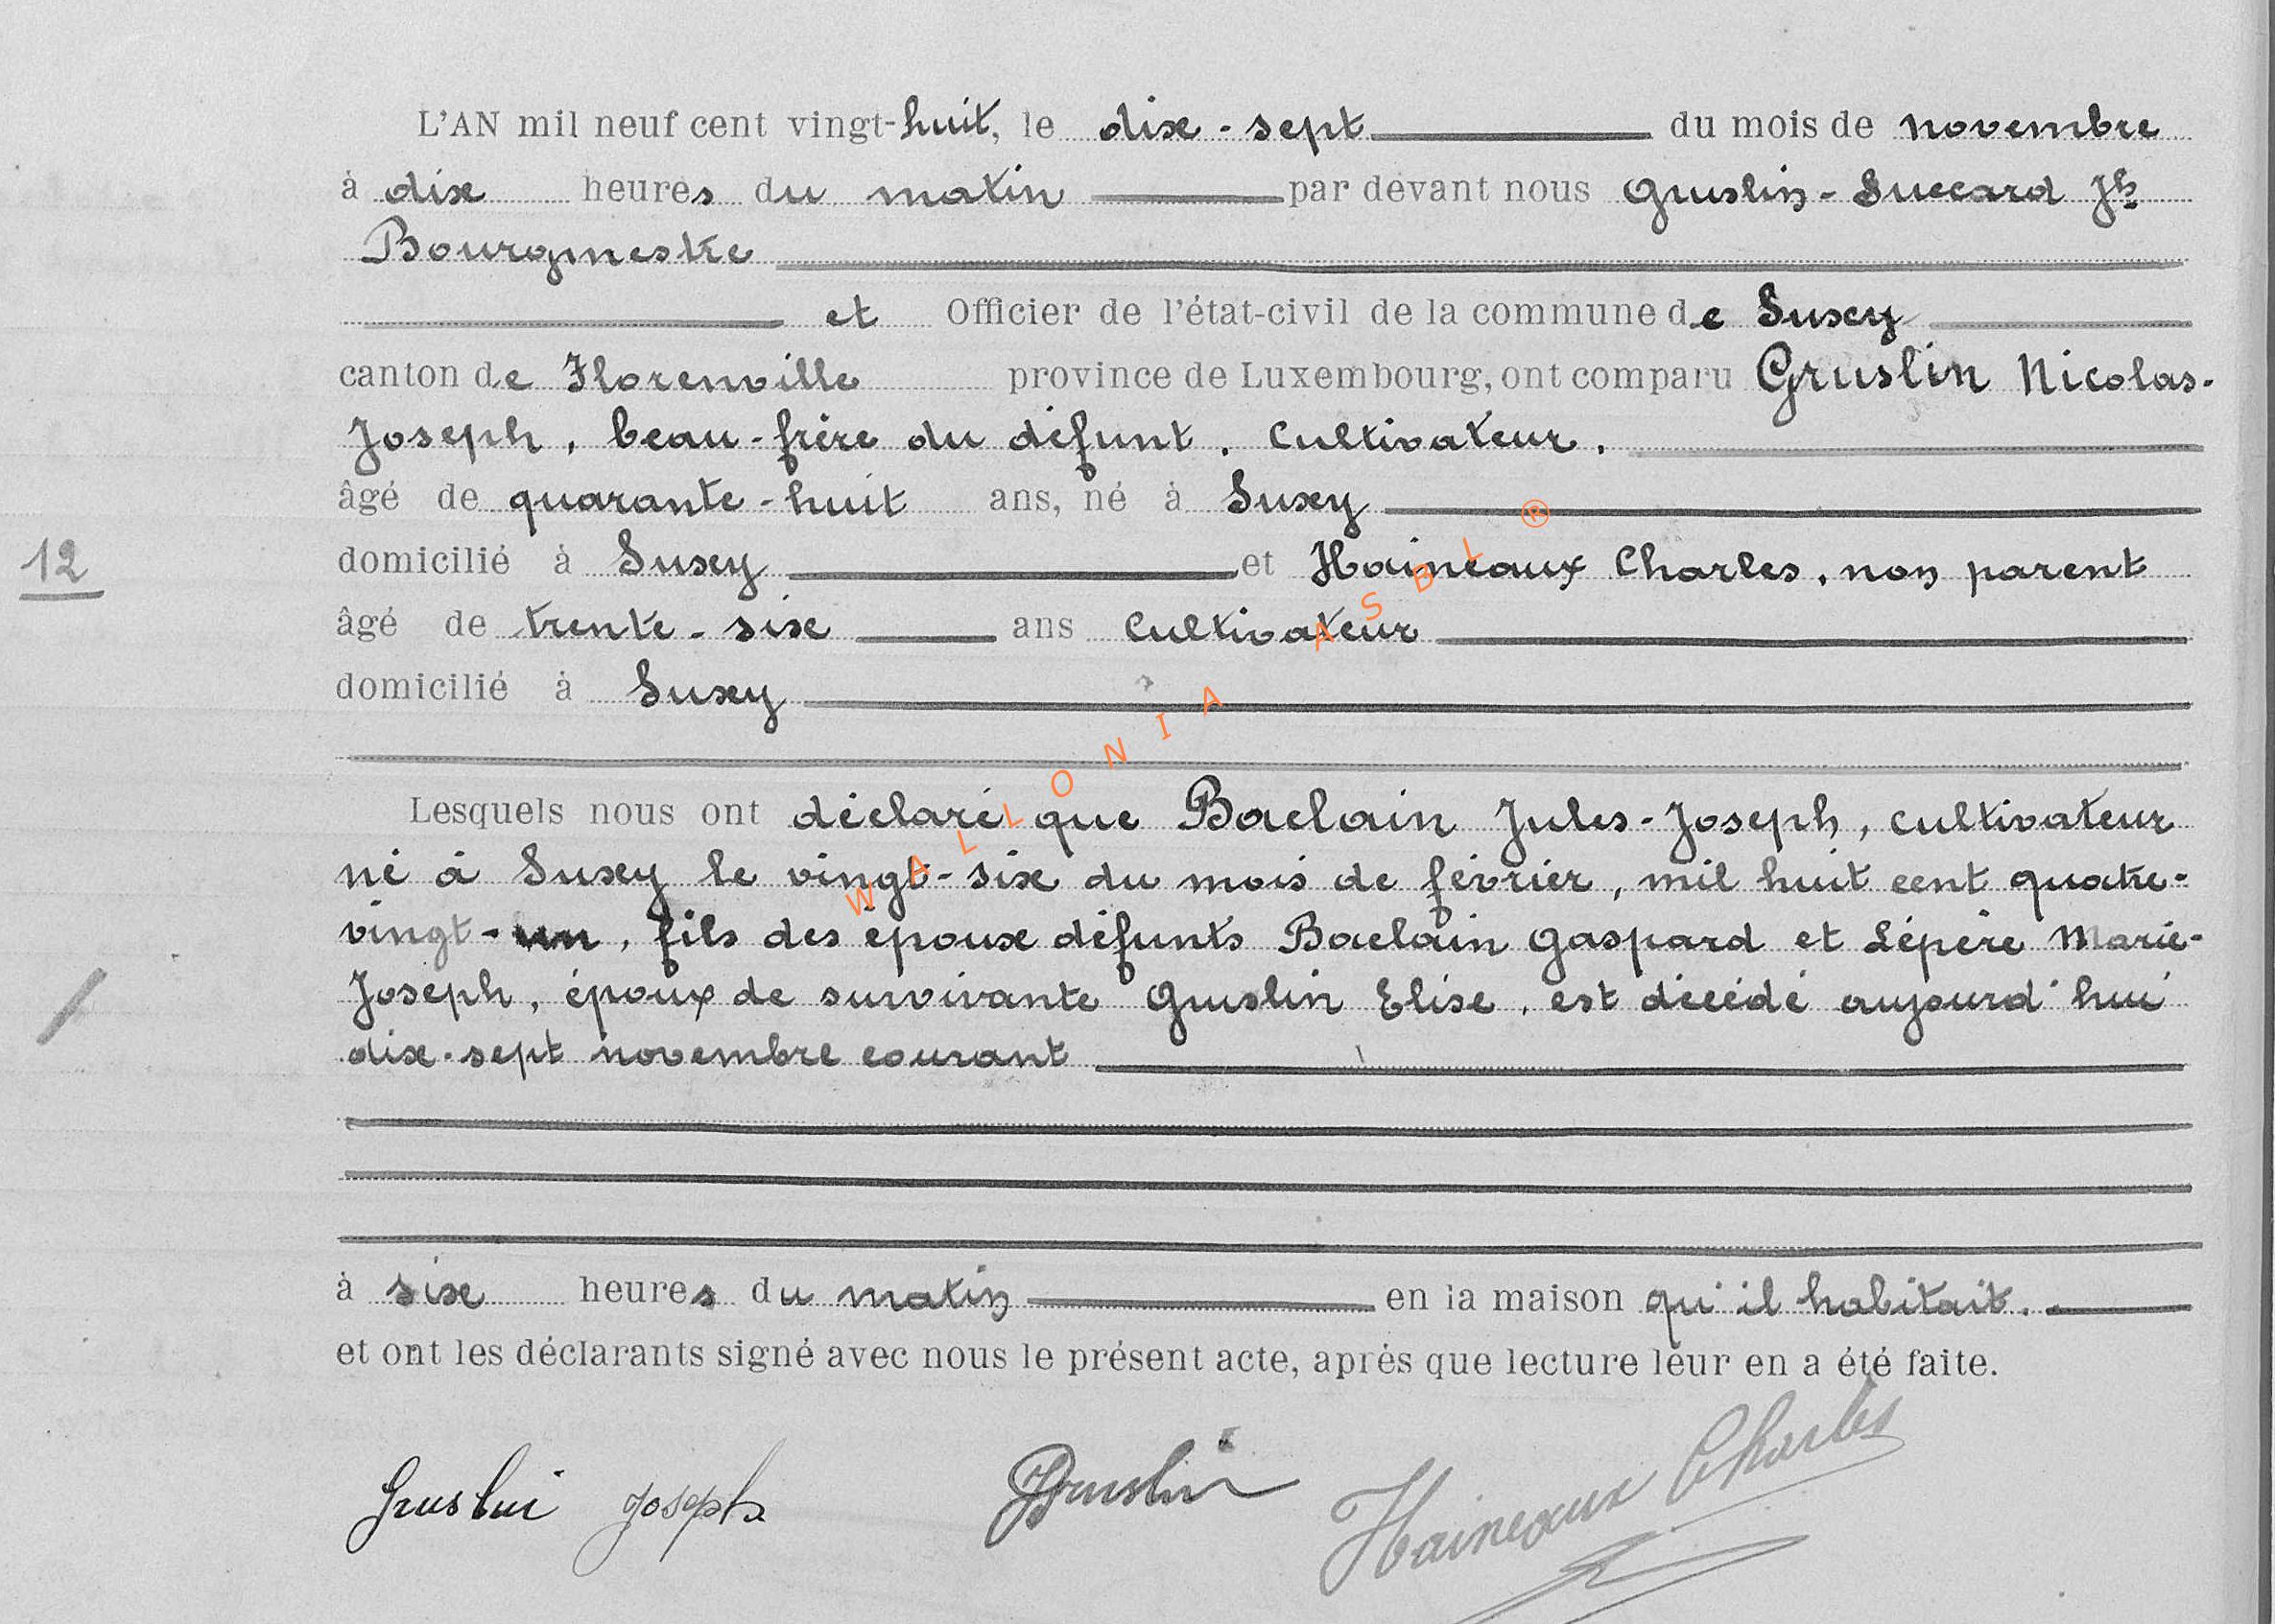 L'AN mil neuf cent vingt-huit, le dix-sept du mois de novembre
à dix heures du matin par devant nous Gruslin-Succard Jh
Bourgmestre
et Officier de l'état-civil de la commune de Suxy
canton de Florenville province de Luxembourg, ont comparu Gruslin Nicolas-
Joseph, beau-frère du défunt, Cultivateur,
âgé de quarante-huit ans, né à Suxy
12
domicilié à Suxy et Haineaux Charles, non parent
âgé de trente-six ans Cultivateur
domicilié à Suxy
Lesquels nous ont déclaré que Baclain Jules-Joseph, cultivateur
né à Suxy le vingt-six du mois de février, mil huit cent quatre-
vingt-un, fils des époux défunts Baclain Gaspard et Lépère Marie-
Joseph, époux de survivante Gruslin Elise, est décédé aujourd'hui
dix-sept novembre courant
à six heures du matin en la maison qu'il habitait.
et ont les déclarants signé avec nous le présent acte, après que lecture leur en a été faite.
Gruslin Joseph JGruslin Haineaux Charles
WALLONIA ASBL ®